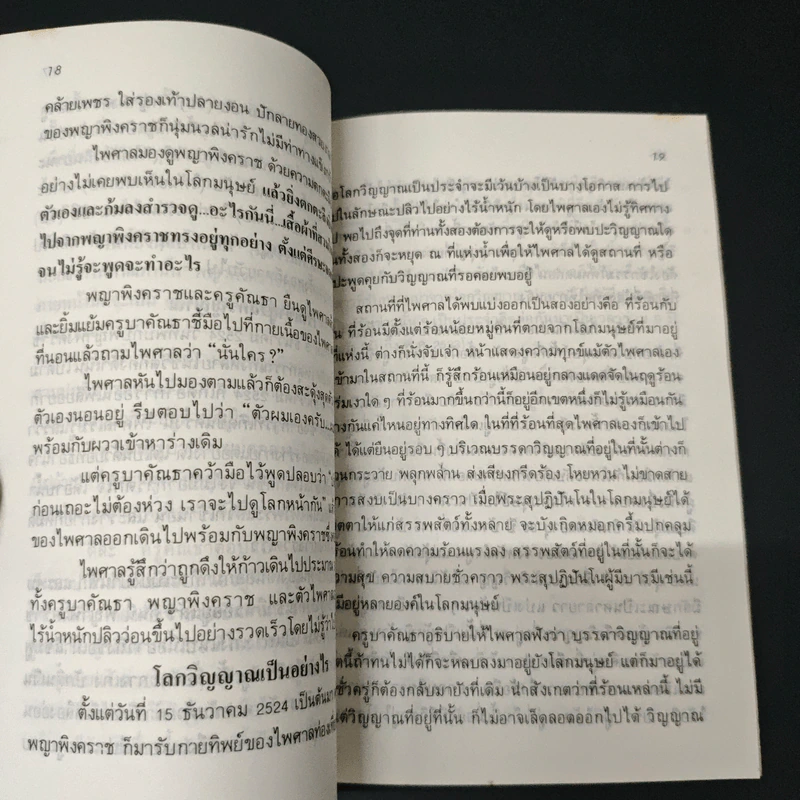 18
คล้ายเพชร ใส่รองเท้าปลายงอน ปักลายทอง
ของพญาพิงคราชก็นุ่มนวลน่ารักไม่มีท่าทาง
ไพศาลมองดูพญาพิงคราช ด้วยความ
อย่างไม่เคยพบเห็นในโลกมนุษย์ แล้วยิ่งตกตะลึง
ตัวเองและก้มลงสำรวจดู...อะไรกันนี่...เสื้อผ้าที่
ไปจากพญาพิงคราชทรงอยู่ทุกอย่าง ตั้งแต่ศีรษะ
จนไม่รู้จะพูดจะทำอะไร
พญาพิงคราชและครูคัณธา ยืนดูไพศาล
และยิ้มแย้มครูบาคัณธาชี้มือไปที่กายเนื้อของไพศาล
ที่นอนแล้วถามไพศาลว่า “นั่นใคร?”
ไพศาลหันไปมองตามแล้วก็ต้องสะดุ้งสุด
ตัวเองนอนอยู่ รีบตอบไปว่า “ตัวผมเองครับ...
พร้อมกับผวาเข้าหาร่างเดิม
แต่ครูบาคัณธาคว้ามือไว้พูดปลอบว่า
ก่อนเถอะไม่ต้องห่วง เราจะไปดูโลกหน้ากัน”
ของไพศาลออกเดินไปพร้อมกับพญาพิงคราช
ไพศาลรู้สึกว่าถูกดึงให้ก้าวเดินไปประมาณ
ทั้งครูบาคัณธา พญาพิงคราช และตัวไพศาล
ไร้น้ำหนักปลิวว่อนขึ้นไปอย่างรวดเร็วโดยไม่รู้
โลกวิญญาณเป็นอย่างไร
ตั้งแต่วันที่ 15 ธันวาคม 2524 เป็นต้นมา
พญาพิงคราช ก็มารับกายทิพย์ของไพศาลท่อง
19
โลกวิญญาณเป็นประจำจะมีเว้นบ้างเป็นบางโอกาส การไป
ในลักษณะปลิวไปอย่างไร้น้ำหนัก โดยไพศาลเองไม่รู้ทิศทาง
พอไปถึงจุดที่ท่านทั้งสองต้องการจะให้ดูหรือพบปะวิญญาณใด
ทั้งสองก็จะหยุด ณ ที่แห่งนั้นเพื่อให้ไพศาลได้ดูสถานที่ หรือ
ปะพูดคุยกับวิญญาณที่รอคอยพบอยู่
สถานที่ที่ไพศาลได้พบแบ่งออกเป็นสองอย่างคือ ที่ร้อนกับ
ที่ร้อนมีตั้งแต่ร้อนน้อยหมู่คนที่ตายจากโลกมนุษย์ที่มาอยู่
ที่แห่งนี้ ต่างก็นั่งจับเจ่า หน้าแสดงความทุกข์แม้ตัวไพศาลเอง
เข้ามาในสถานที่นี้ ก็รู้สึกร้อนเหมือนอยู่กลางแดดจัดในฤดูร้อน
ร่มเงาใด ๆ ที่ร้อนมากขึ้นกว่านี้ก็อยู่อีกเขตหนึ่งก็ไม่รู้เหมือนกัน
างกันแค่ไหนอยู่ทางทิศใด ในที่ที่ร้อนที่สุดไพศาลเองก็เข้าไป
ได้ ได้แต่ยืนอยู่รอบ ๆ บริเวณบรรดาวิญญาณที่อยู่ในที่นั้นต่างก็
วนกระวาย พลุกพล่าน ส่งเสียงกรีดร้อง โหยหวน ไม่ขาดสาย
การสงบเป็นบางคราว เมื่อพระสุปฏิปันโนในโลกมนุษย์ได้
ตตาให้แก่สรรพสัตว์ทั้งหลาย จะบังเกิดหมอกครึ้มปกคลุม
ร้อนทำให้ลดความร้อนแรงลง สรรพสัตว์ที่อยู่ในที่นั้นก็จะได้
วามสุข ความสบายชั่วคราว พระสุปฏิปันโนผู้มีบารมีเช่นนี้
มีอยู่หลายองค์ในโลกมนุษย์
ครูบาคัณธาอธิบายให้ไพศาลฟังว่า บรรดาวิญญาณที่อยู่
ตนี้ถ้าทนไม่ได้ก็จะหลบลงมาอยู่ยังโลกมนุษย์ แต่ก็มาอยู่ได้
ชั่วครู่ก็ต้องกลับมายังที่เดิม น่าสังเกตว่าที่ร้อนเหล่านี้ ไม่มี
แต่วิญญาณที่อยู่ที่นั้น ก็ไม่อาจเล็ดลอดออกไปได้ วิญญาณ